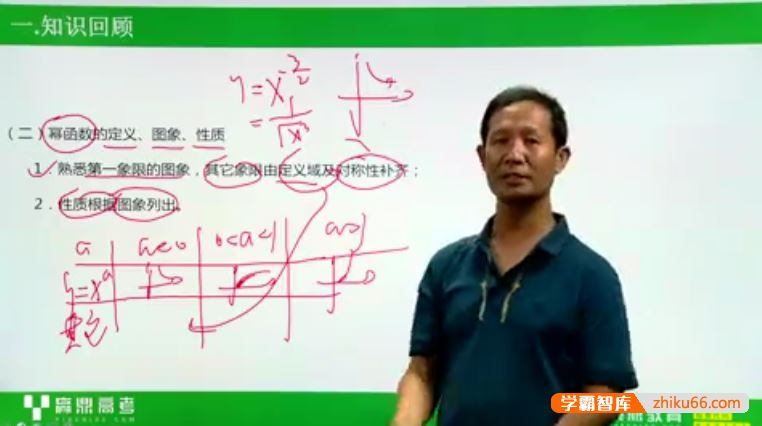 一.知识回顾
y=x^{-3/2}
=1/√x³
（二）幂函数的定义、图象、性质
1．熟悉第一象限的图象，其它象限由定义域及对称性补齐；
2．性质根据图象列出。
a a<0 0<a<1 a>1
y=x^a
高考
教育
学霸智库 zhiku66.com